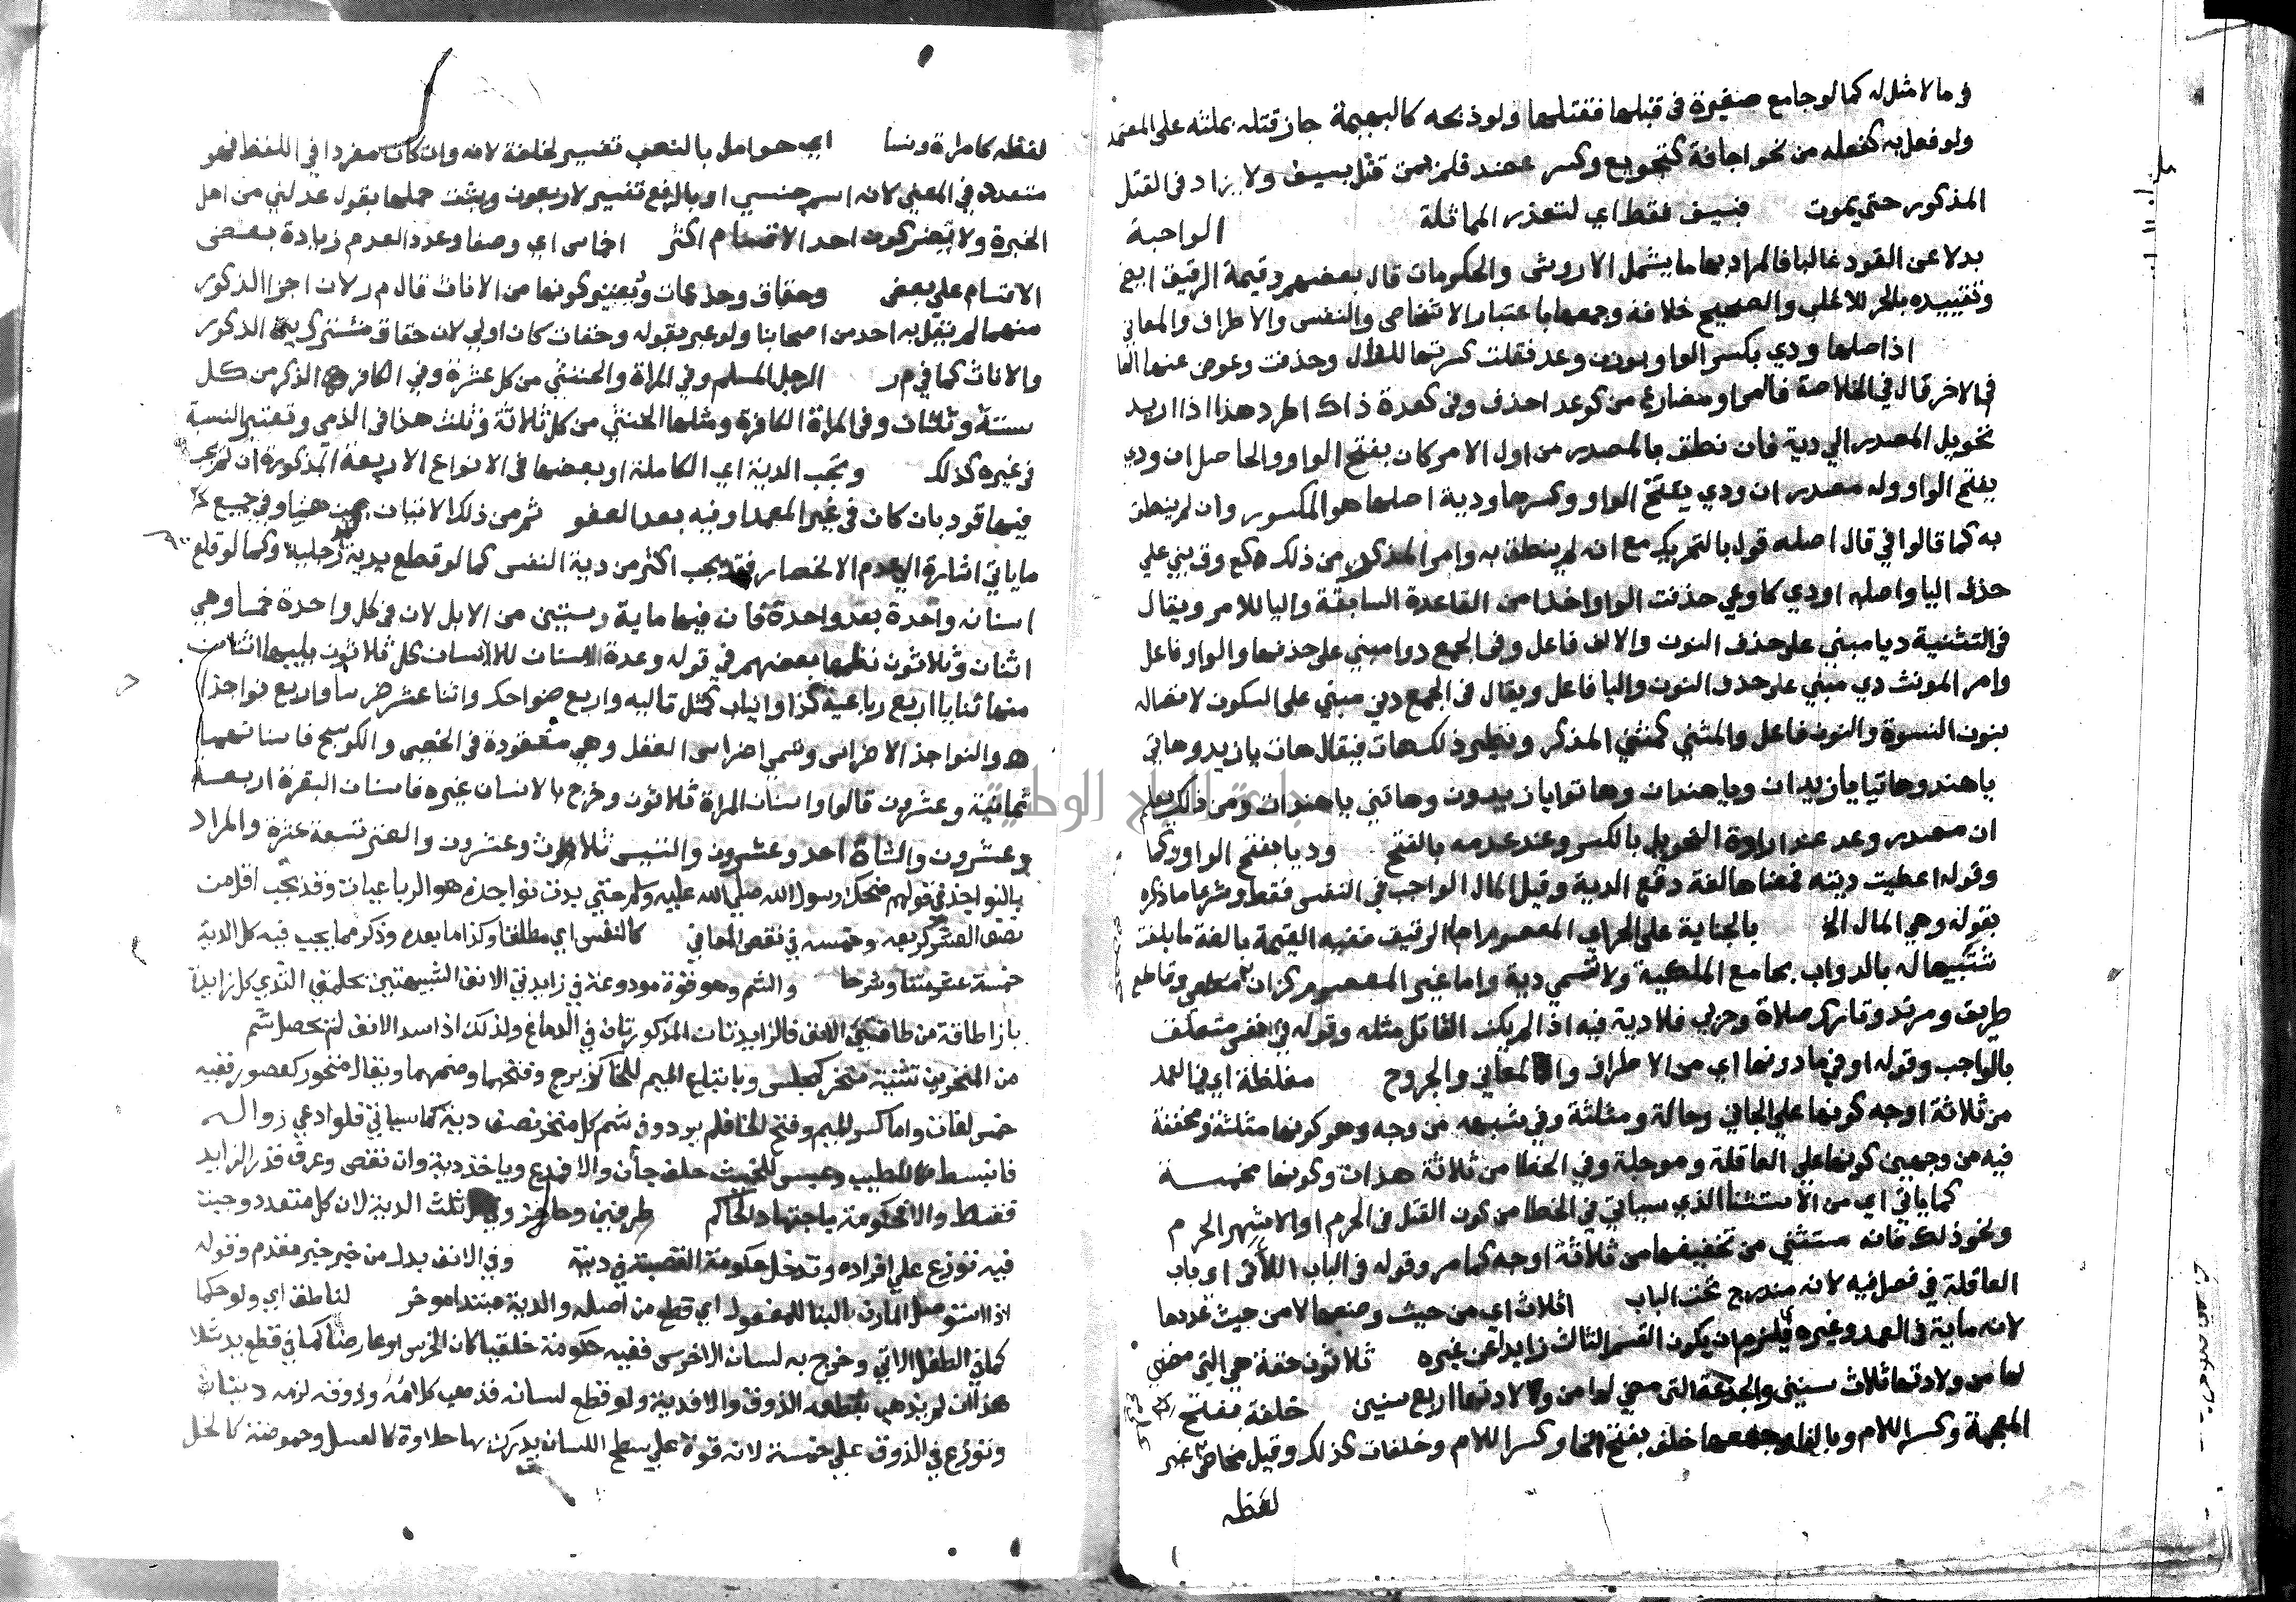 في ما لا مثل له كما لو جامع صغيرة في قبلها فقتلها ولو ذبحه كالبهيمة جاز قتله بمثله على المعتمد
ولو فعل به كفعله من نحو اجافة كتجويع وكسر عضد فلم يمت قتل بسيف ولا يزاد في الفعل
المذكور حتى يموت فبسيف فقط اي لتعذر المماثلة الواجبة
بدلا عن القود غالبا فالمراد بها ما يشمل الاروش والحكومات قال بعضهم وقيمة الرقيق ايضا
وتقييده بالحر للاغلب والصحيح خلافه وجمعها باعتبار الاشخاص والنفس والاطراف والمعاني
اذ اصلها ودي بكسر الواو بوزن وعد فنقلت كسرتها للدال وحذفت وعوض عنها الها
في الاخر قال في الخلاصة فا امر او مضارع من كوعد احذف وفي كعدة ذاك اطرد هذا اذا اريد
تحويل المصدر الي دية فان نطق بالمصدر من اول الامر كان بفتح الواو والحاصل ان ودي
بفتح الواو وله مصدران ودي بفتح الواو وكسرها ودية اصلها هو المكسور وان لم ينطق
به كما قالوا في قال اصله قول بالتحريك مع انه لم ينطق به وامر المذكر من ذلك د كع وق بني علي
حذف اليا واصله اودي كاوعي حذفت الواو اخذا من القاعدة السابقة واليا للامر ويقال
في التثنية ديا مبني على حذف النون والالف فاعل وفي الجمع دوا مبني على حذفها والواو فاعل
وامر المونث دي مبني على حذف النون واليا فاعل ويقال في الجمع دين مبني على السكون لاتصاله
بنون النسوة والنون فاعل والمثني كمثني المذكر ونظير ذلك هات فيقال هات يا زيد وهاتي
يا هند وهاتيا يا زيدان ويا هندان وهاتوا يا زيدون وهاتين يا هندات ومن ذلك يعلم
ان مصدر وعد عند ارادة التحويل بالكسر وعند عدمه بالفتح وديا بفتح الواو وكما
وقوله اعطيت ديته فمعناها لغة دفع الدية وقيل المال الواجب في النفس فقط وشرعا ما ذكره
بقوله وهي المال الخ بالجناية على الحر اي المعصوم اما الرقيق ففيه القيمة بالغة ما بلغت
تشبيها له بالدواب بجامع الملكية ولا تسمي دية واما غير المعصوم كزان محصن وقاطع
طريق ومرتد وتارك صلاة وحربي فلا دية فيه اذا لم يكن القاتل مثله وقوله في نفس متعلق
بالواجب وقوله او فيما دونها اي من الاطراف والمعاني والجروح مغلظة اي في العمد
من ثلاثة اوجه كونها علي الجاني وحالة ومثلثة وفي شبهه من وجه وهو كونها مثلثة ومخففة
فيه من وجهين كونها علي العاقلة وموجلة وفي الخطا من ثلاثة هذان وكونها مخمسة
كما ياتي اي من الاستثنا الذي سياتي في الخطا من كون القتل في الحرم او الاشهر الحرم
ونحو ذلك فانه مستثني من تخفيفها من ثلاثة اوجه كما مر وقوله في الباب اللاتي اي باب
العاقلة في فصل فيه لانه مندرج تحت الباب اثلاث اي من حيث وصفها لا من حيث عددها
لانه ماية في العمد وغيره فلزم ان يكون القسم الثالث زايدا عن غيره ثلاثون حقة هي التي مضي
لها من ولادتها ثلاث سنين والجذعة التي مضي لها من ولادتها اربع سنين خلفة بفتح
المعجمة وكسر اللام وبالفا وجمعها خلف بفتح الخا وكسر اللام وخلفات كذلك وقيل مخاض غير
لفظه
لفظه كامراة ونسا اي حوامل بالنصب تفسير لخلفة لانه وان كان مفردا في اللفظ فهو
متعدد في المعني لانه اسم جنس او بالرفع تفسير لاربعون ويثبت حملها بقول عدلين من اهل
الخبرة ولا يضر كون احد الاقسام اكثر اخماس اي وصفا وعددا لعدم زيادة بعض
الاقسام علي بعض وحقاق وجذعات ويعتبر كونها من الاناث قال م ر لان اجزا الذكور
منهما لم يقل به احد من اصحابنا ولو عبر بقوله وحقات كان اولي لان حقاق مشترك بين الذكور
والاناث كما في م ر الرجل المسلم وفي المراة والخنثي من كل عشرة وفي الكافر الذكر من كل
ستة وثلثان وفي المراة الكافرة ومثلها الخنثي من كل ثلاثة وثلث هذا في الذمي وتعتبر النسبة
في غيره كذلك وتجب الدية اي الكاملة او بعضها في الانواع الاربعة المذكورة ان لم يجب
فيها قود بان كان في غير العمد او فيه بعد العفو ثم من ذلك الاتيان بمن هنا وفي جميع
ما ياتي اشارة الي عدم الانحصار فقد يجب اكثر من دية النفس كما لو قطع يديه ورجليه وكما لو قلع
اسنانه واحدة بعد واحدة فان فيها ماية وستين من الابل لان في كل واحدة خمسا وهي
اثنان وثلاثون نظمها بعضهم في قوله وعدة الاسنان للانسان كل ثلاثون يليها اثنان
منها ثنايا اربع رباعية كذا وانياب كمثل تاليه واربع ضواحك واثنا عشر ضرسا واربع نواجذ
ه والنواجذ الاضراس وتسمي اضراس العقل وهي مفقودة في الخصي والكوسج فاسنانهما
ثمانية وعشرون قالوا واسنان المراة ثلاثون وخرج بالانسان غيره فاسنان البقرة اربعة
وعشرون والشاة احد وعشرون والتيس ثلاث وعشرون والعنز تسعة عشرة والمراد
بالنواجذ في قولهم ضحك رسول الله صلي الله عليه وسلم حتي بدت نواجذه هو الرباعيات وقد يجب اقل من
نصف العشر كربعه وخمسه في نقص المعاني كالنفس اي مطلقا وكذا ما بعده وذكر مما يجب فيه كل الدية
خمسة عشر متنا وشرحا والشم وهو قوة مودوعة في زايدتي الانف الشبيهتين بحلمتي الثدي كل زايدة
بازا طاقة من طاقتي الانف فالزايدتان المذكورتان في الدماغ ولذلك اذا سد الانف لم يحصل شم
من المنخرين تثنية منخر كمجلس وباتباع الميم للخا وفتحهما وضمهما ويقال منخور كعصفور ففيه
خمس لغات واما كسر الميم وفتح الخا فلم يرد وفي شم كل منخر نصف دية كما سياتي فلو ادعي زواله
فانبسط للطيب وعبس للخبيث حلف جان والا فمدع وياخذ دية وان نقص وعرف قدر الزايد
فقسط والا فحكومة باجتهاد الحاكم طرفين وحاجز وفي كل ثلث الدية لان كل متعدد وجبت
فيه توزع علي افراده وتدخل حكومة القصبة في ديته وفي الانف بدل من خبر خبر مقدم وقوله
اذا استوصل المارن بالبنا للمفعول اي قطع من اصله والدية مبتدا موخر لناطق اي ولو حكما
كما في الطفل الاتي وخرج به لسان الاخرس ففيه حكومة خلقيا كان الخرس او عارضا كما في قطع يد شلا
هذا ان لم يذهب بقطعه الذوق والا فدية ولو قطع لسانه فذهب كلامه وذوقه لزمه ديتان
وتوزع في الذوق علي خمسة لانه قوة علي سطح اللسان يدرك بها حلاوة كالعسل وحموضة كالخل